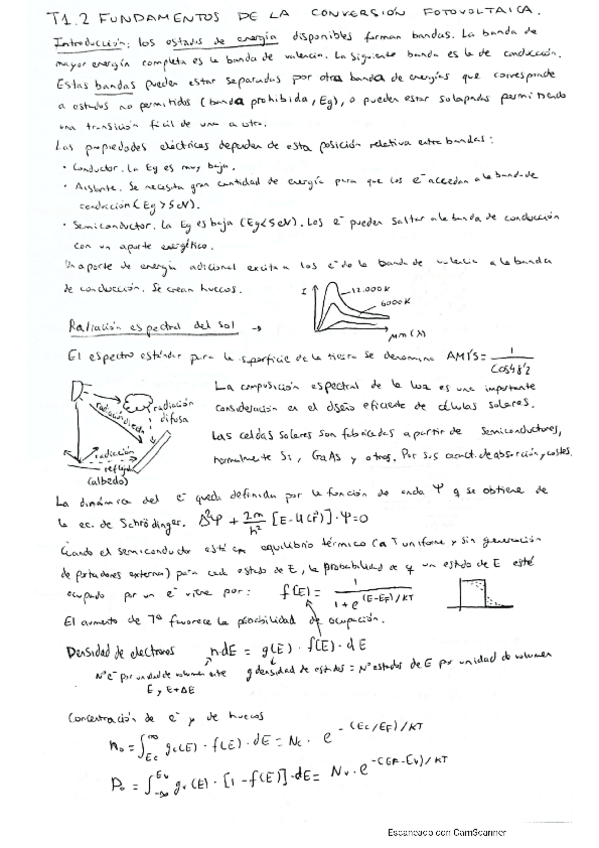 T1.2 FUNDAMENTOS DE LA CONVERSIÓN FOTOVOLTAICA.
Introducción: los estados de energía disponibles forman bandas. La banda de
mayor energía completa es la banda de valencia. La siguiente banda es la de conducción.
Estas bandas pueden estar separadas por otra banda de energías que corresponde
a estados no permitidos (banda prohibida, Eg), o pueden estar solapadas permitiendo
una transición fácil de una a otra.
Las propiedades eléctricas dependen de esta posición relativa entre bandas:
· Conductor. La Eg es muy baja.
· Aislante. Se necesita gran cantidad de energía para que los e⁻ accedan a la banda de
conducción (Eg > 5eV).
· Semiconductor. La Eg es baja (Eg<5eV). Los e⁻ pueden saltar a la banda de conducción
con un aporte energético.
Un aporte de energía adicional excita a los e⁻ de la banda de valencia a la banda
de conducción. Se crean huecos.
I
12.000K
6000K
μm (λ)
Radiación espectral del sol →
El espectro estándar para la superficie de la tierra se denomina AM1'5 = 1/cos48'2
La composición espectral de la luz es una importante
consideración en el diseño eficiente de células solares.
Las celdas solares son fabricadas a partir de semiconductores,
normalmente Si, GaAs y otros. Por sus caract. de absorción y costes.
radiación directa
radiación
difusa
radiación
reflejada
(albedo)
La dinámica del e⁻ queda definida por la función de onda Ψ q se obtiene de
la ec. de Schrödinger. Δ²Ψ + 2m/ħ² [E-U(r⃗)]·Ψ=0
Cuando el semiconductor está en equilibrio térmico (a T uniforme y sin generación
de portadores externa) para cada estado de E, la probabilidad de q un estado de E esté
ocupado por un e⁻ viene por: f(E) = 1/(1 + e^(E-E_F)/KT)
El aumento de Tª favorece la probabilidad de ocupación.
Densidad de electrones n·dE = g(E)·f(E)·dE
Nº e⁻ por unidad de volumen entre
E y E+ΔE
g densidad de estados = Nº estados de E por unidad de volumen
Concentración de e⁻ y de huecos
n₀ = ∫_Ec^∞ gc(E)·f(E)·dE = Nc · e^-(Ec/EF)/KT
P₀ = ∫_-∞^Ev gv(E)·[1-f(E)]·dE = Nv·e^-(EF-Ev)/KT
Escaneado con CamScanner